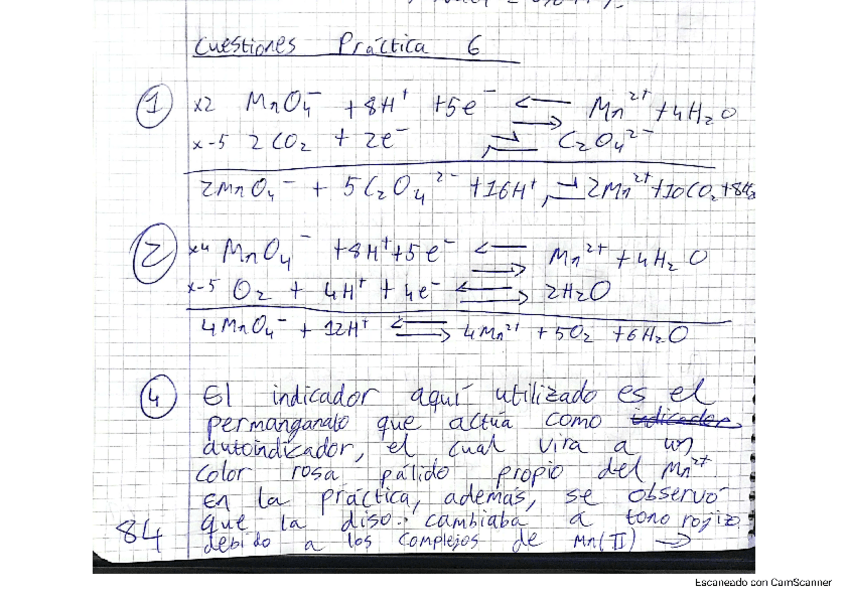 Cuestiones Práctica 6
① x2 MnO₄⁻ + 8H⁺ + 5e⁻ ⇌ Mn²⁺ + 4H₂O
x-5 2CO₂ + 2e⁻ ⇌ C₂O₄²⁻
2MnO₄⁻ + 5C₂O₄²⁻ + 16H⁺ ⇌ 2Mn²⁺ + 10CO₂ + 8H₂
② x4 MnO₄⁻ + 8H⁺ + 5e⁻ ⇌ Mn²⁺ + 4H₂O
x-5 O₂ + 4H⁺ + 4e⁻ ⇌ 2H₂O
4MnO₄⁻ + 12H⁺ ⇌ 4Mn²⁺ + 5O₂ + 6H₂O
④ El indicador aquí utilizado es el
permanganato que actúa como indicador
autoindicador, el cual vira a un
color rosa pálido propio del Mn²⁺
En la práctica, además, se observó
que la diso. cambiaba a tono rojiz
debido a los complejos de Mn(II) →
84
Escaneado con CamScanner